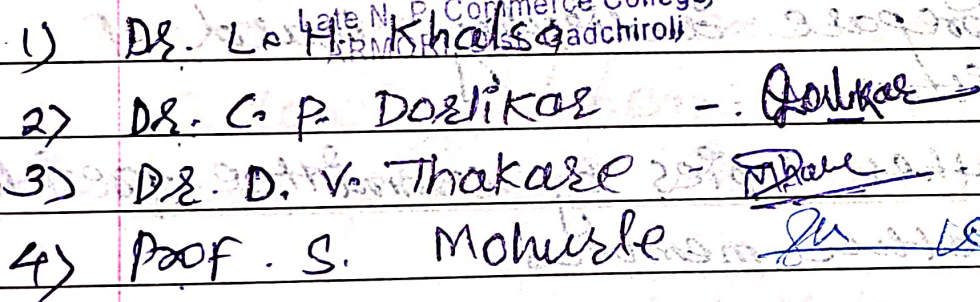 Late N. P. Commerce College,
Gadchiroli
1) Dr. L. H. Khalsa
2) Dr. C. P. Dorlikar - Dorlikar
3) Dr. D. V. Thakare -
4) Prof. S. Mohurle